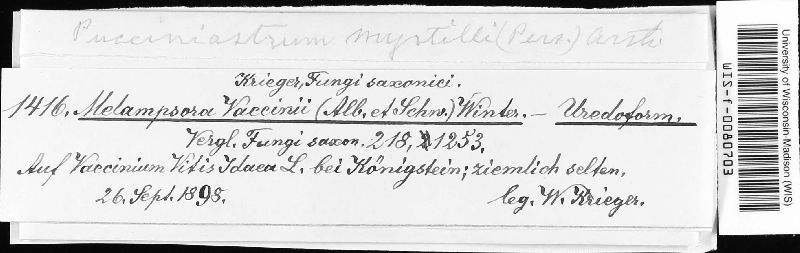 Pucciniastrum myrtilli (Pers.) Arth
Krieger, Fungi saxonici.
1416. Melampsora Vaccinii (Alb. et Schw.) Winter. — Uredoform.
Vergl. Fungi saxon. 218, 1253.
Auf Vaccinium Vitis Idaea L. bei Königstein; ziemlich selten.
26. Sept. 1898. leg. W. Krieger.
University of Wisconsin-Madison (WIS)
WIS-f-0080703